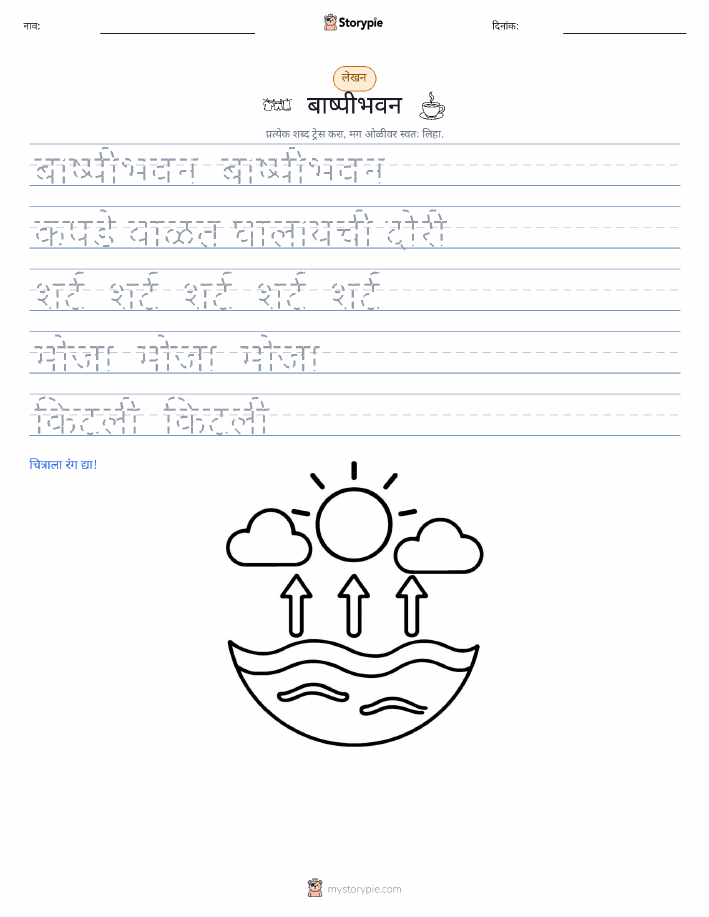 नाव:
Storypie
दिनांक:
लेखन
बाष्पीभवन
प्रत्येक शब्द ट्रेस करा, मग ओळीवर स्वतः लिहा.
बाष्पीभवन बाष्पीभवन
कपडे वाळत घालायची दोरी
शर्ट शर्ट शर्ट शर्ट शर्ट
मोजा मोजा मोजा
किटली किटली
चित्राला रंग द्या!
mystorypie.com